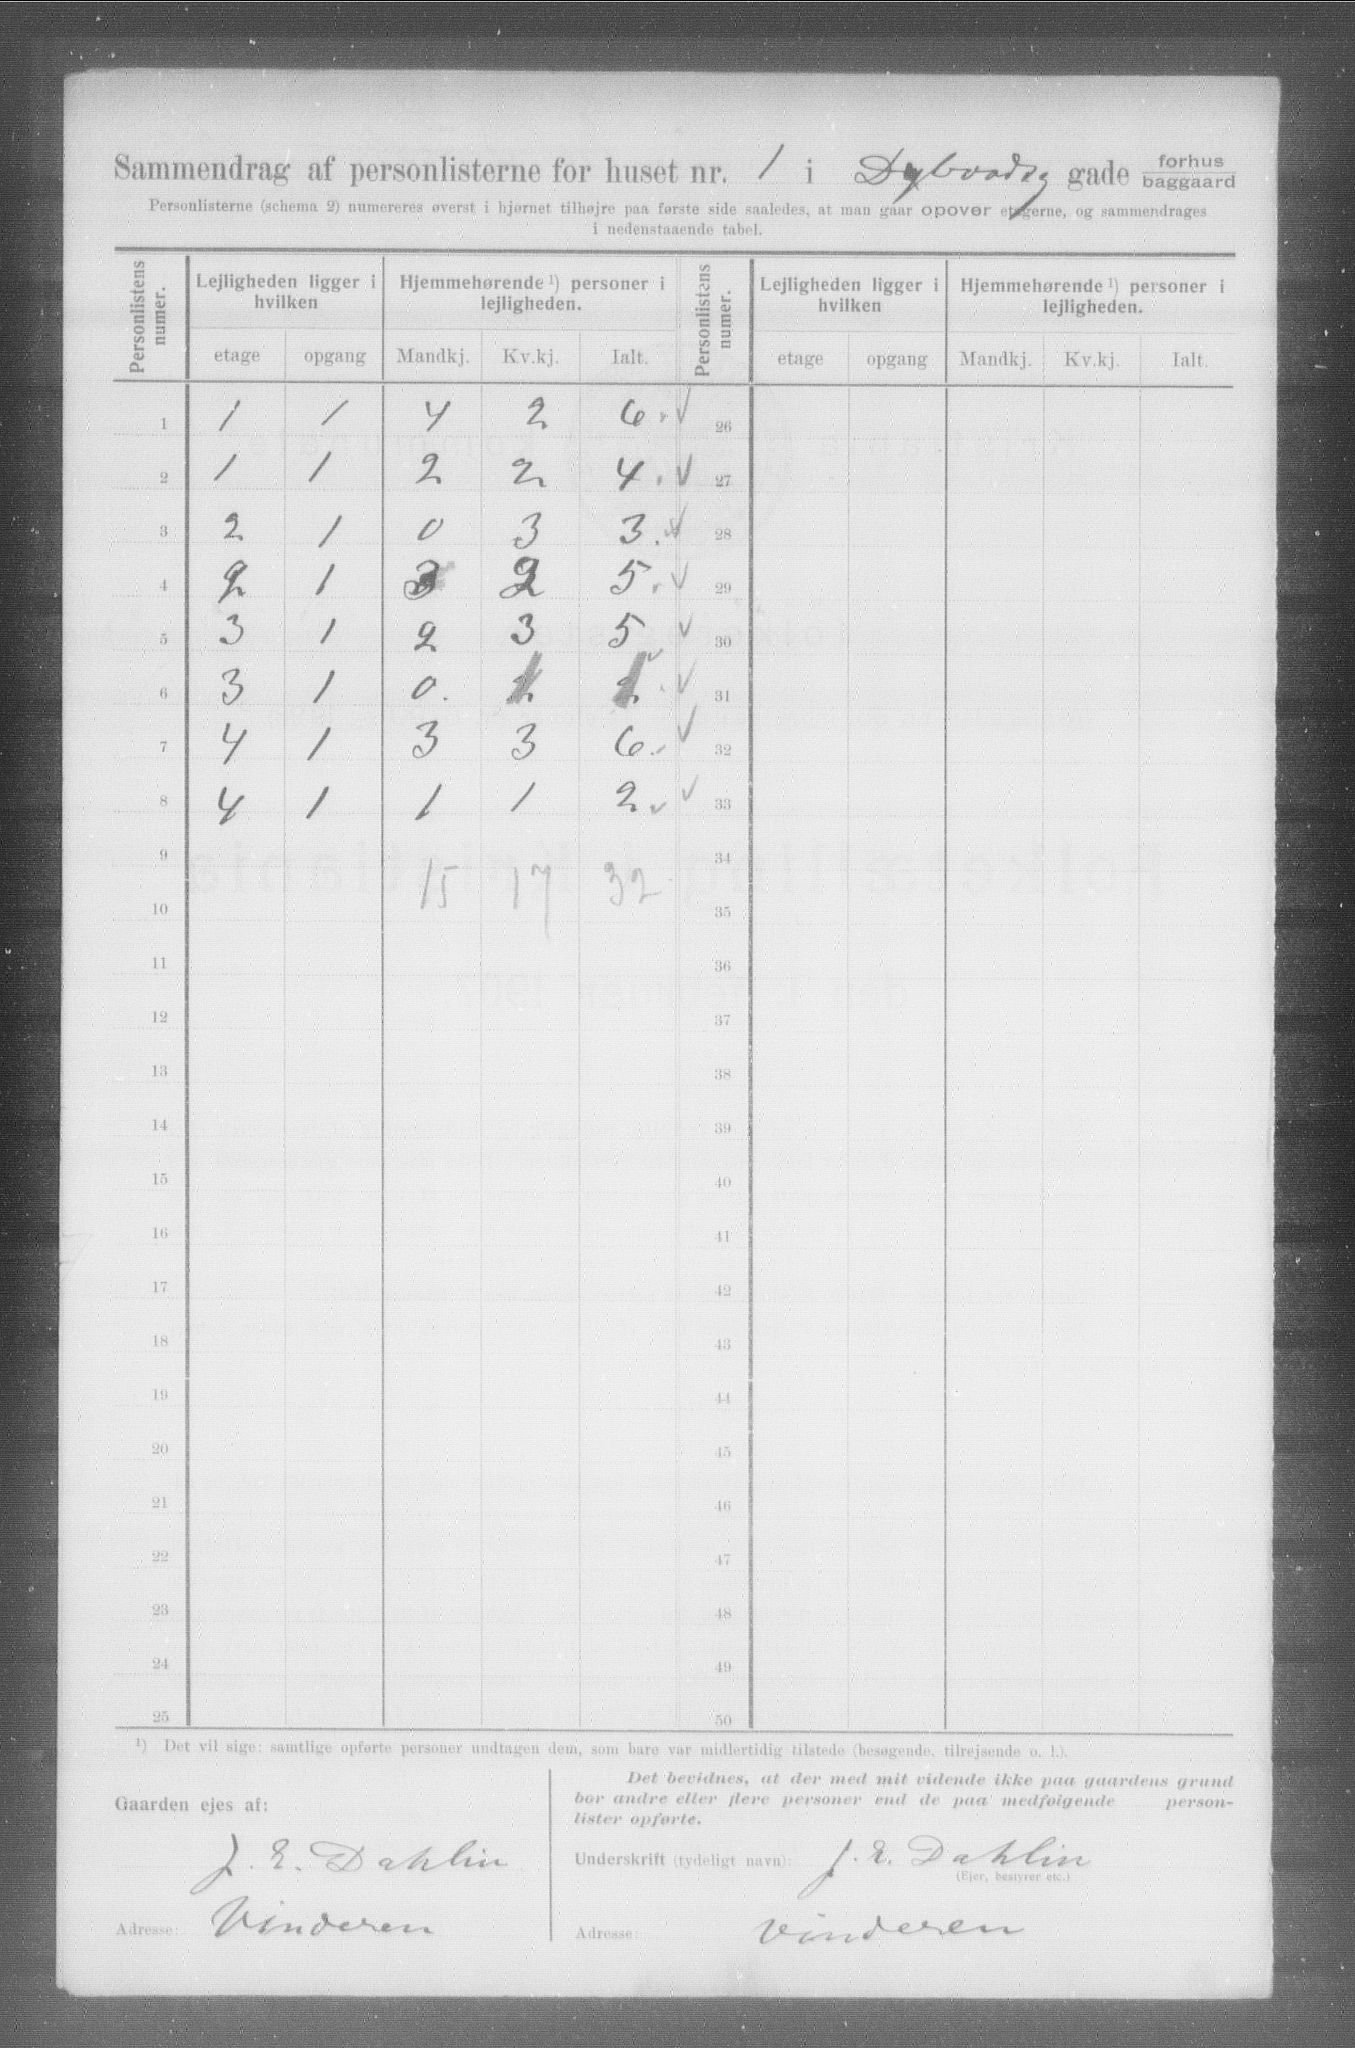 Sammendrag af personlisterne for huset nr. 1 i Dybvadsg gade forhus
baggaard
Personlisterne (schema 2) numereres øverst i hjørnet tilhøjre paa første side saaledes, at man gaar opover etagerne, og sammendrages
i nedenstaaende tabel.
Personlistens numer. Lejligheden ligger i hvilken Hjemmehørende ¹) personer i lejligheden. Personlistens numer. Lejligheden ligger i hvilken Hjemmehørende ¹) personer i lejligheden.
etage opgang Mandkj. Kv.kj. Ialt. etage opgang Mandkj. Kv.kj. Ialt.
1 1 1 4 2 6. ✓ 26
2 1 1 2 2 4. ✓ 27
3 2 1 0 3 3. ✓ 28
4 2 1 3 2 5. ✓ 29
5 3 1 2 3 5 ✓ 30
6 3 1 0. 1 1. ✓ 31
7 4 1 3 3 6. ✓ 32
8 4 1 1 1 2 ✓ ✓ 33
9 34
15 17 32
10 35
11 36
12 37
13 38
14 39
15 40
16 41
17 42
18 43
19 44
20 45
21 46
22 47
23 48
24 49
25 50
¹) Det vil sige: samtlige opførte personer undtagen dem, som bare var midlertidig tilstede (besøgende, tilrejsende o. l.).
Gaarden ejes af:
J. E. Dahlin
Adresse: Vinderen
Det bevidnes, at der med mit vidende ikke paa gaardens grund
bor andre eller flere personer end de paa medfølgende person-
lister opførte.
Underskrift (tydeligt navn): J. E. Dahlin
(Ejer, bestyrer etc.)
Adresse: Vinderen